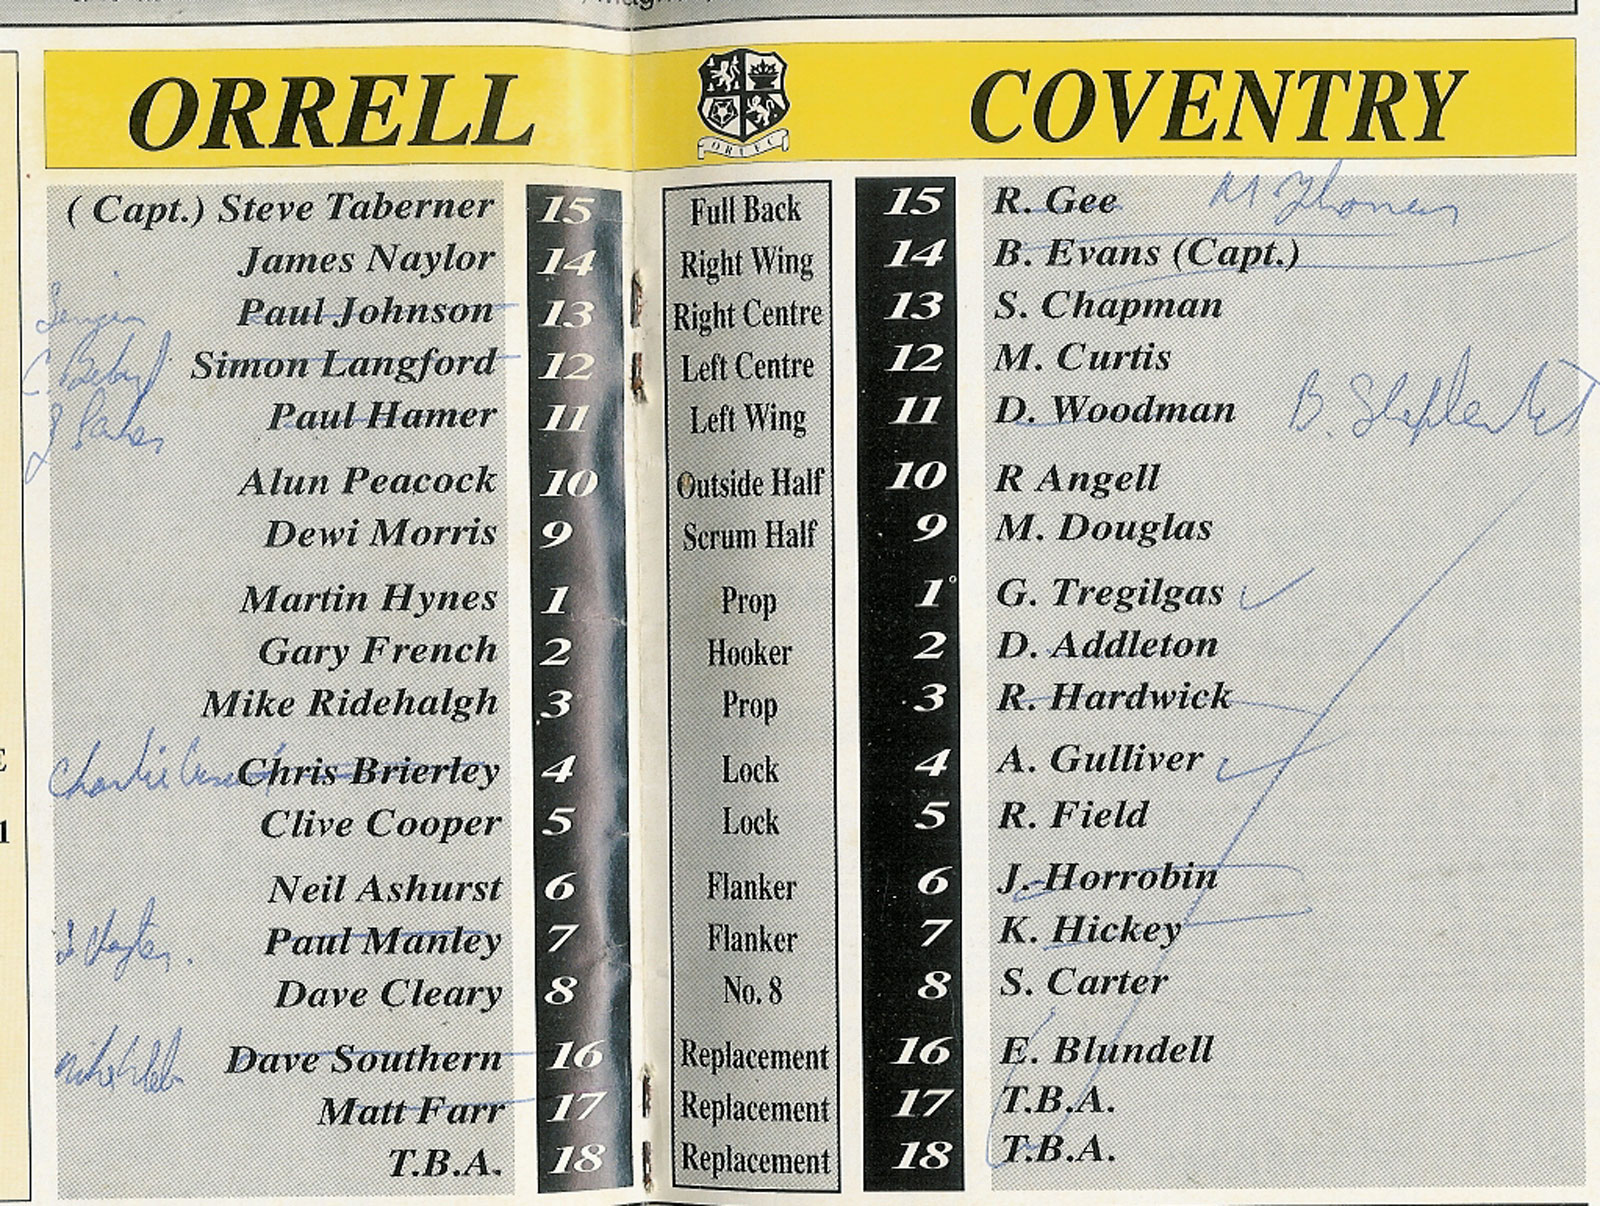 ORRELL COVENTRY
O R U F C
( Capt.) Steve Taberner 15 Full Back 15 R. Gee M Thomas
James Naylor 14 Right Wing 14 B. Evans (Capt.)
Paul Johnson 13 Right Centre 13 S. Chapman
Simon Langford 12 Left Centre 12 M. Curtis
Paul Hamer 11 Left Wing 11 D. Woodman B.
Alun Peacock 10 Outside Half 10 R Angell
Dewi Morris 9 Scrum Half 9 M. Douglas
Martin Hynes 1 Prop 1 G. Tregilgas
Gary French 2 Hooker 2 D. Addleton
Mike Ridehalgh 3 Prop 3 R. Hardwick
Charlie Chris Brierley 4 Lock 4 A. Gulliver
Clive Cooper 5 Lock 5 R. Field
Neil Ashurst 6 Flanker 6 J. Horrobin
Paul Manley 7 Flanker 7 K. Hickey
Dave Cleary 8 No. 8 8 S. Carter
Dave Southern 16 Replacement 16 E. Blundell
Matt Farr 17 Replacement 17 T.B.A.
T.B.A. 18 Replacement 18 T.B.A.